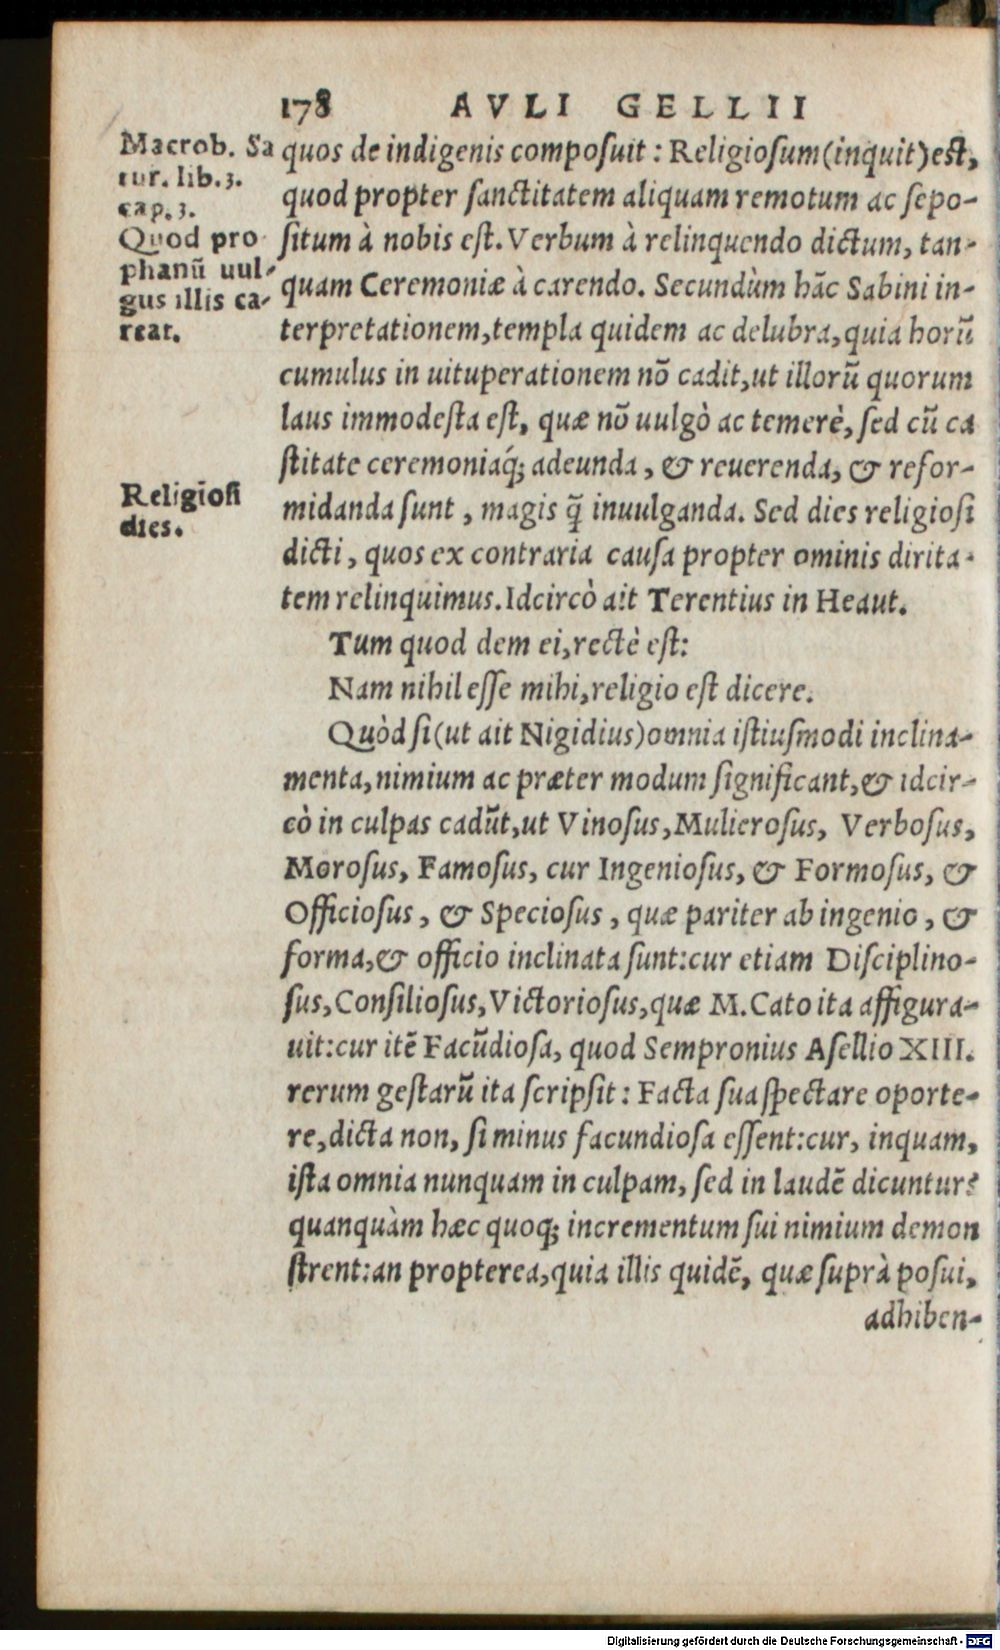 178 AVLI GELLII
Macrob. Sa
tur. lib.3.
cap.3.
Quod pro
phanū uul-
gus illis ca-
reat.
quos de indigenis composuit : Religiosum(inquit)est,
quod propter sanctitatem aliquam remotum ac sepo-
situm à nobis est. Verbum à relinquendo dictum, tan-
quam Ceremoniæ à carendo. Secundùm hāc Sabini in-
terpretationem,templa quidem ac delubra,quia horū
cumulus in uituperationem nō cadit,ut illorū quorum
laus immodesta est, quæ nō uulgò ac temerè, sed cū ca
stitate ceremoniaq́; adeunda, & reuerenda, & refor-
Religiosi
dies.
midanda sunt, magis q̃ inuulganda. Sed dies religiosi
dicti, quos ex contraria causa propter ominis dirita-
tem relinquimus. Idcircò ait Terentius in Heaut.
Tum quod dem ei,rectè est:
Nam nihil esse mihi,religio est dicere.
Quòd si(ut ait Nigidius)omnia istiusmodi inclina-
menta,nimium ac præter modum significant,& idcir-
cò in culpas cadūt,ut Vinosus,Mulierosus, Verbosus,
Morosus, Famosus, cur Ingeniosus, & Formosus, &
Officiosus, & Speciosus, quæ pariter ab ingenio, &
forma,& officio inclinata sunt:cur etiam Disciplino-
sus,Consiliosus,Victoriosus,quæ M.Cato ita affigura-
uit:cur itē Facūdiosa, quod Sempronius Asellio XIII.
rerum gestarū ita scripsit: Facta sua spectare oporte-
re,dicta non, si minus facundiosa essent:cur, inquam,
ista omnia nunquam in culpam, sed in laudē dicuntur?
quanquàm hæc quoq; incrementum sui nimium demon
strent:an propterea,quia illis quidē, quæ suprà posui,
adhiben-
Digitalisierung gefördert durch die Deutsche Forschungsgemeinschaft - DFG